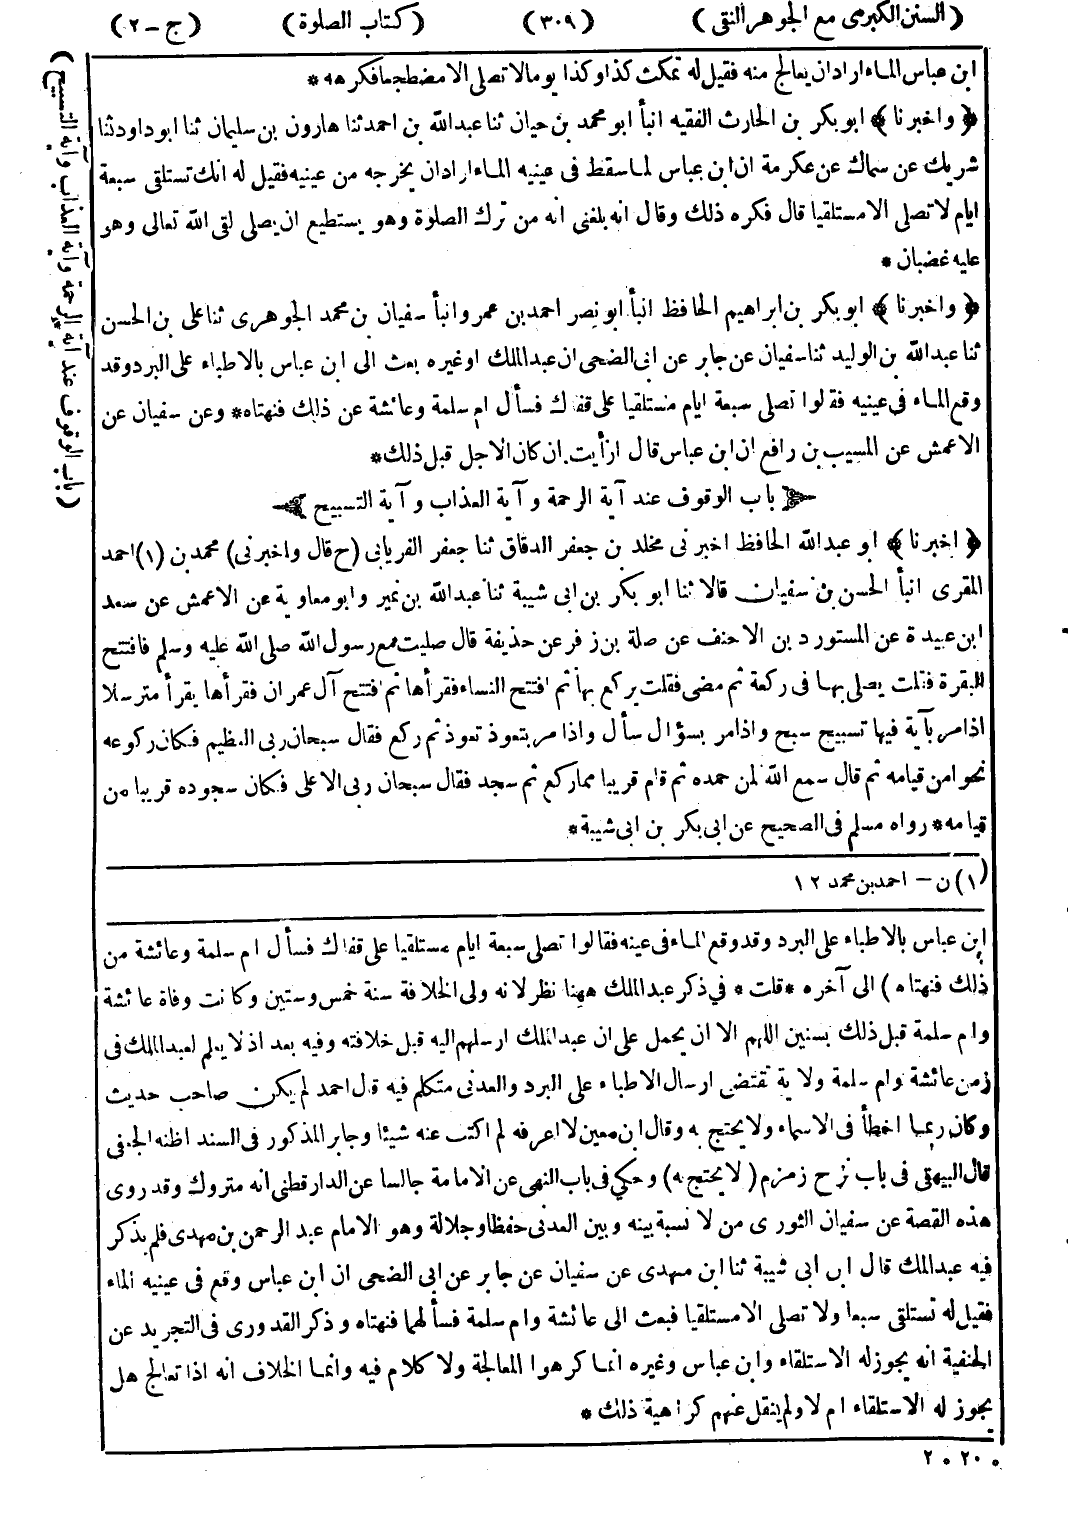 (السنن الكبرى مع الجوهر النقى) (٣٠٩) (كتاب الصلوة) (ج – ٢)
ابن عباس الماء اراد ان يعالج منه فقيل له تمكث كذا وكذا يوما لا تصلى الا مضطجعا فكرهه *
﴿ واخبرنا ﴾ ابو بكر بن الحارث الفقيه انبأ ابو محمد بن حيان ثنا عبد الله بن احمد ثنا هارون بن سليمان ثنا ابو داود ثنا
شريك عن سماك عن عكرمة ان ابن عباس لما سقط فى عينيه الماء اراد ان يخرجه من عينيه فقيل له انك تستلقى سبعة
ايام لا تصلى الا مستلقيا قال فكره ذلك وقال انه بلغنى انه من ترك الصلوة وهو يستطيع ان يصلى لقى الله تعالى وهو
عليه غضبان *
﴿ واخبرنا ﴾ ابو بكر بن ابراهيم الحافظ انبأ ابو نصر احمد بن عمرو انبأ سفيان بن محمد الجوهرى ثنا على بن الحسن
ثنا عبد الله بن الوليد ثنا سفيان عن جابر عن ابى الضحى ان عبد الملك او غيره بعث الى ابن عباس بالاطباء على البرد وقد
وقع الماء فى عينيه فقالوا تصلى سبعة ايام مستلقيا على قفاك فسأل ام سلمة وعائشة عن ذلك فنهتاه * وعن سفيان عن
الاعمش عن المسيب بن رافع ان ابن عباس قال ارأيت ان كان الاجل قبل ذلك *
باب الوقوف عند آية الرحمة و آية العذاب و آية التسبيح
﴿ اخبرنا ﴾ ابو عبد الله الحافظ اخبرنى مخلد بن جعفر الدقاق ثنا جعفر الفريابى (ح قال واخبرنى) محمد بن (١) احمد
المقرى انبأ الحسن بن سفيان قالا ثنا ابو بكر بن ابى شيبة ثنا عبد الله بن نمير وابو معاوية عن الاعمش عن سعد
ابن عبيدة عن المستورد بن الاحنف عن صلة بن زفر عن حذيفة قال صليت مع رسول الله صلى الله عليه وسلم فافتتح
البقرة فقلت يصلى بها فى ركعة ثم مضى فقلت يركع بها ثم افتتح النساء فقرأها ثم افتتح آل عمران فقرأها يقرأ مترسلا
اذا مر بآية فيها تسبيح سبح واذا مر بسؤال سأل واذا مر بتعوذ تعوذ ثم ركع فقال سبحان ربى العظيم فكان ركوعه
نحوا من قيامه ثم قال سمع الله لمن حمده ثم قام قريبا مما ركع ثم سجد فقال سبحان ربى الاعلى فكان سجوده قريبا من
قيامه * رواه مسلم فى الصحيح عن ابى بكر بن ابى شيبة *
(١) ن – احمد بن محمد ١٢
ابن عباس بالاطباء على البرد وقد وقع الماء فى عينه فقالوا تصلى سبعة ايام مستلقيا على قفاك فسأل ام سلمة وعائشة من
ذلك فنهتاه) الى آخره * قلت * فى ذكر عبد الملك ههنا نظر لانه ولى الخلافة سنة خمس وستين وكانت وفاة عائشة
وام سلمة قبل ذلك بسنين اللهم الا ان يحمل على ان عبد الملك ارسلهم اليه قبل خلافته وفيه بعد اذ لا يعلم لعبد الملك فى
زمن عائشة وام سلمة ولاية تقتضى ارسال الاطباء على البرد والعدنى متكلم فيه قال احمد لم يكن صاحب حديث
وكان ربما اخطأ فى الاسماء ولا يحتج به وقال ابن معين لا اعرفه لم اكتب عنه شيئا وجابر المذكور فى السند اظنه الجعفى
قال البيهقى فى باب نزح زمزم (لا يحتج به) وحكى فى باب النهى عن الامامة جالسا عن الدارقطنى انه متروك وقد روى
هذه القصة عن سفيان الثورى من لا نسبة بينه وبين العدنى حفظا وجلالة وهو الامام عبد الرحمن بن مهدى فلم يذكر
فيه عبد الملك قال ابن ابى شيبة ثنا ابن مهدى عن سفيان عن جابر عن ابى الضحى ان ابن عباس وقع فى عينيه الماء
فقيل له تستلقى سبعا ولا تصلى الا مستلقيا فبعث الى عائشة وام سلمة فسألهما فنهتاه وذكر القدورى فى التجريد عن
الحنفية انه يجوز له الاستلقاء وابن عباس وغيره انما كرهوا المعالجة ولا كلام فيه وانما الخلاف انه اذا تعالج هل
يجوز له الاستلقاء ام لا ولم ينقل عنهم كراهية ذلك *
(باب الوقوف عند آية الرحمة وآية العذاب وآية التسبيح)